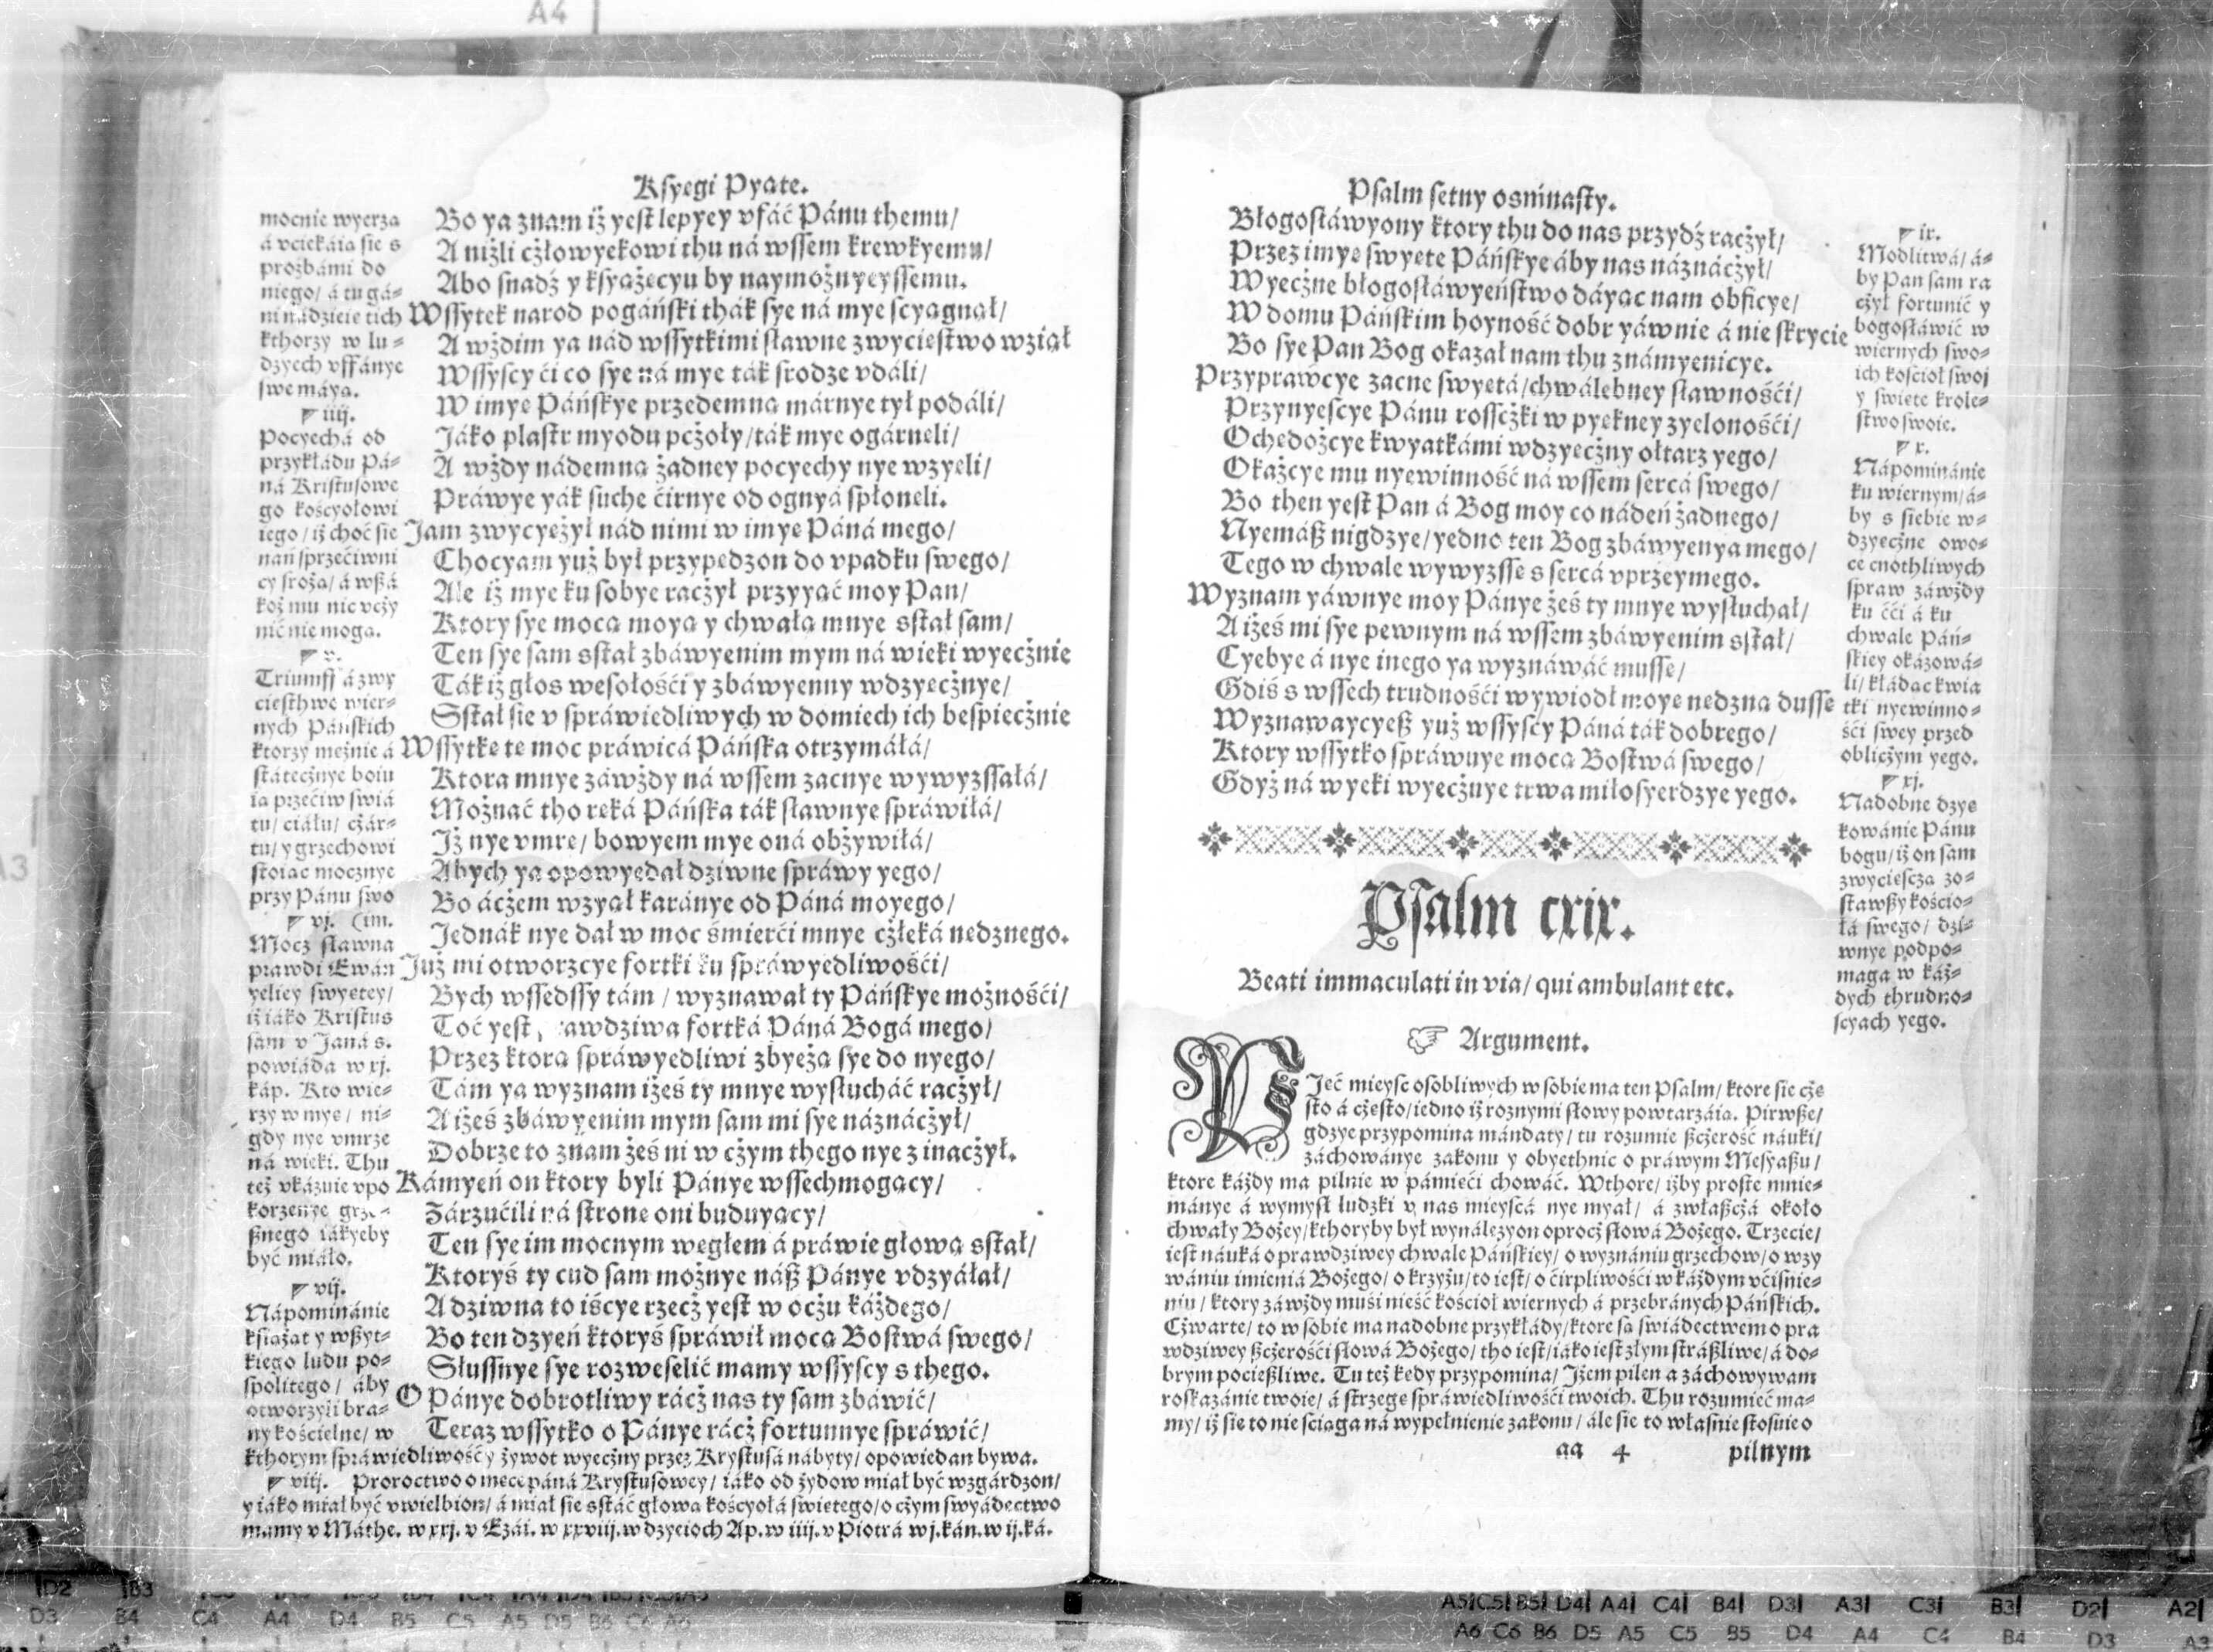 Ksyegi Pyąte.
mocnie wyerzą
á vciekáią się s
proźbámi do
niego/ á tu gá=
ni nádzieię tich
kthorzy w lu=
dzyech vffánye
swe máyą.
iiij.
Pocyechá od
przykłádu Pá=
ná Kristusowe
go kościołowi
iego/ iż choć się
nań sprzećiwni
cy srożą/ á wßá
koż mu nic vczy
nić nie mogą.
v.
Triumff á zwy
cięsthwo wier=
nych Páńskich
ktorzy mężnie á
státecżnye boiu
ią przećiw swiá
tu/ ciáłu/ cżár=
tu/ y grzechowi
stoiąc mocznye
przy Pánu swo
vj. (im.
Mocz sławna
prawdi Ewán
yeliey swyętey/
iż iáko Kristus
sam v Janá s.
powiáda w xj.
káp. Kto wie=
rzy w mye/ ni=
gdy nye vmrze
ná wieki. Thu
też vkázuie vpo
korzenye grze=
ßnego iákyeby
być miáło.
vij.
Nápominánie
książąt y wßyt=
kiego ludu po=
spolitego/ áby
otworzyli bra=
ny kościelne/ w
Bo ya znam iż yest lepyey vfáć Pánu themu/
A niżli cżłowyekowi thu ná wssem krewkyemu/
Abo snadź y ksyążęcyu by naymożnyeyssemu.
Wssytek narod pogáński thák sye ná mye scyągnął/
A wżdim ya nád wssytkimi sławne zwycięstwo wziął
Wssyscy ći co sye ná mye ták srodze vdáli/
W imye Páńskye przedemną márnye tył podáli/
Jáko plastr myodu pcżoły/ ták mye ogárnęli/
A wżdy nádemną żadney pocyechy nye wzyęli/
Práwye yák suche ćirnye od ognyá spłonęli.
Jam zwycyężył nád nimi w imye Páná mego/
Chocyam yuż był przypędzon do vpadku swego/
Ale iż mye ku sobye racżył przyyąć moy Pan/
Ktory sye mocą moyą y chwałą mnye sstał sam/
Ten sye sam sstał zbáwyenim mym ná wieki wyecżnie
Ták iż głos wesołośći y zbáwyenny wdzyęcżnye/
Sstał się v spráwiedliwych w domiech ich bespiecżnie
Wssytkę tę moc práwicá Páńska otrzymáłá/
Ktora mnye záwżdy ná wssem zacnye wywyzssałá/
Możnać tho ręká Páńska ták sławnye spráwiłá/
Iż nye vmrę/ bowyem mye oná obżywiłá/
Abych ya opowyedał dziwne spráwy yego/
Bo ácżem wzyął karánye od Páná moyego/
Jednák nye dał w moc śmierći mnye cżłeká nędznego.
Już mi otworzcye fortki ku spráwyedliwośći/
Bych wssedssy tám/ wyznawał ty Páńskye możnośći/
Toć yest, awdziwa fortká Páná Bogá mego/
Przez ktorą spráwyedliwi zbyeżą sye do nyego/
Tám ya wyznam iżeś ty mnye wysłucháć racżył/
A iżeś zbáwyenim mym sam mi sye náznácżył/
Dobrze to znam żeś ni w cżym thego nye z inacżył.
Kámyeń on ktory byli Pánye wssechmogący/
Zárzućili ná stronę oni buduyący/
Ten sye im mocnym węgłem á práwie głową sstał/
Ktoryś ty cud sam możnye náß Pánye vdzyáłał/
A dziwna to iście rzecż yest w ocżu káżdego/
Bo ten dzyeń ktoryś spráwił mocą Bostwá swego/
Słussnye sye rozweselić mamy wssyscy s thego.
O Pánye dobrotliwy rácż nas ty sam zbáwić/
Teraz wssytko o Pánye rácż fortunnye spráwić/
kthorym spráwiedliwość y żywot wyecżny przez Krystusá nábyty/ opowiedan bywa.
viij. Proroctwo o męce páná Krystusowey/ iáko od żydow miał być wzgárdzon/
y iáko miał być vwielbion/ á miał się sstáć głową kościołá świętego/ o cżym swyádectwo
mamy v Máthe. w xxj. v Ezái. w xxviij. w dzyeioch Ap. w iiij. v Piotrá w j. kán. w ij. ká.
Psalm setny osminasty.
Błogosłáwyony ktory thu do nas przydź racżył/
Przez imye swyęte Páńskye áby nas náznácżył/
Wyecżne błogosłáwyeństwo dáyąc nam obficye/
W domu Páńskim hoyność dobr yáwnie á nie skrycie
Bo sye Pan Bog okazał nam thu známyenicye.
Przyprawcye zacne swyętá/ chwálebney sławnośći/
Przynyescye Pánu rosscżki w pyękney zyelonośći/
Ochędożcye kwyatkámi wdzyęcżny ołtarz yego/
Okażcye mu nyewinność ná wssem sercá swego/
Bo then yest Pan á Bog moy co nádeń żadnego/
Nyemáß nigdzye/ yedno ten Bog zbáwyenya mego/
Tego w chwale wywyzssę s sercá vprzeymego.
Wyznam yáwnye moy Pánye żeś ty mnye wysłuchał/
A iżeś mi sye pewnym ná wssem zbáwyenim sstał/
Cyebye á nye inego ya wyznáwáć mussę/
Gdiś s wssech trudnośći wywiodł moyę nędzną dussę
Wyznawaycyeß yuż wssyscy Páná ták dobrego/
Ktory wssytko spráwuye mocą Bostwá swego/
Gdyż ná wyeki wyecżnye trwa miłosyerdzye yego.
ix.
Modlitwá/ á=
by Pan sam ra
cżył fortunić y
bogosłáwić w
wiernych swo=
ich kościoł swoj
y święte krole=
stwo swoie.
x.
Nápominánie
ku wiernym/ á=
by s siebie w=
dzyęcżne owo=
ce cnothliwych
spraw záwżdy
ku ćći á ku
chwale Páń=
skiey okázowá=
li/ kłádąc kwia
tki nyewinno=
śći swey przed
oblicżym yego.
xj.
Nadobne dzyę
kowánie Pánu
bogu/ iż on sam
zwycięscżą zo=
stawßy kościo=
łá swego/ dzi=
wnye podpo=
maga w káż=
dych thrudno=
scyach yego.
Psalm cxix.
Beati immaculati in via/ qui ambulant etc.
☞ Argument.
Jęć mieysc osobliwych w sobie ma ten Psalm/ ktore się cżę
sto á cżęsto/ iedno iż roznymi słowy powtarzáią. Pirwße/
gdzye przypomina mándaty/ tu rozumie ßcżerość náuki/
záchowánye zakonu y obyethnic o práwym Mesyaßu/
ktore káżdy ma pilnie w pámięći chowáć. Wthore/ iżby proste mnie=
mánye á wymysł ludzki v nas mieyscá nye myał/ á zwłaßcżá około
chwały Bożey/ kthoryby był wynálezyon oprocż słowá Bożego. Trzecie/
iest náuká o prawdziwey chwale Páńskiey/ o wyznániu grzechow/ o wzy
wániu imieniá Bożego/ o krzyżu/ to iest/ o ćirpliwośći w káżdym vćiśnie=
niu/ ktory záwżdy muśi nieść kościoł wiernych á przebránych Páńskich.
Cżwarte/ to w sobie ma nadobne przykłády/ ktore są swiádectwem o pra
wdziwey ßcżerośći słowá Bożego/ tho iest/ iáko iest złym stráßliwe/ á do=
brym pocießliwe. Tu też kedy przypomina/ Iżem pilen a záchowywam
roskazánie twoie/ á strzegę spráwiedliwośći twoich. Thu rozumieć ma=
my/ iż się to nie ściąga ná wypełnienie zakonu/ ále się to własnie stosuie o
aa 4 pilnym